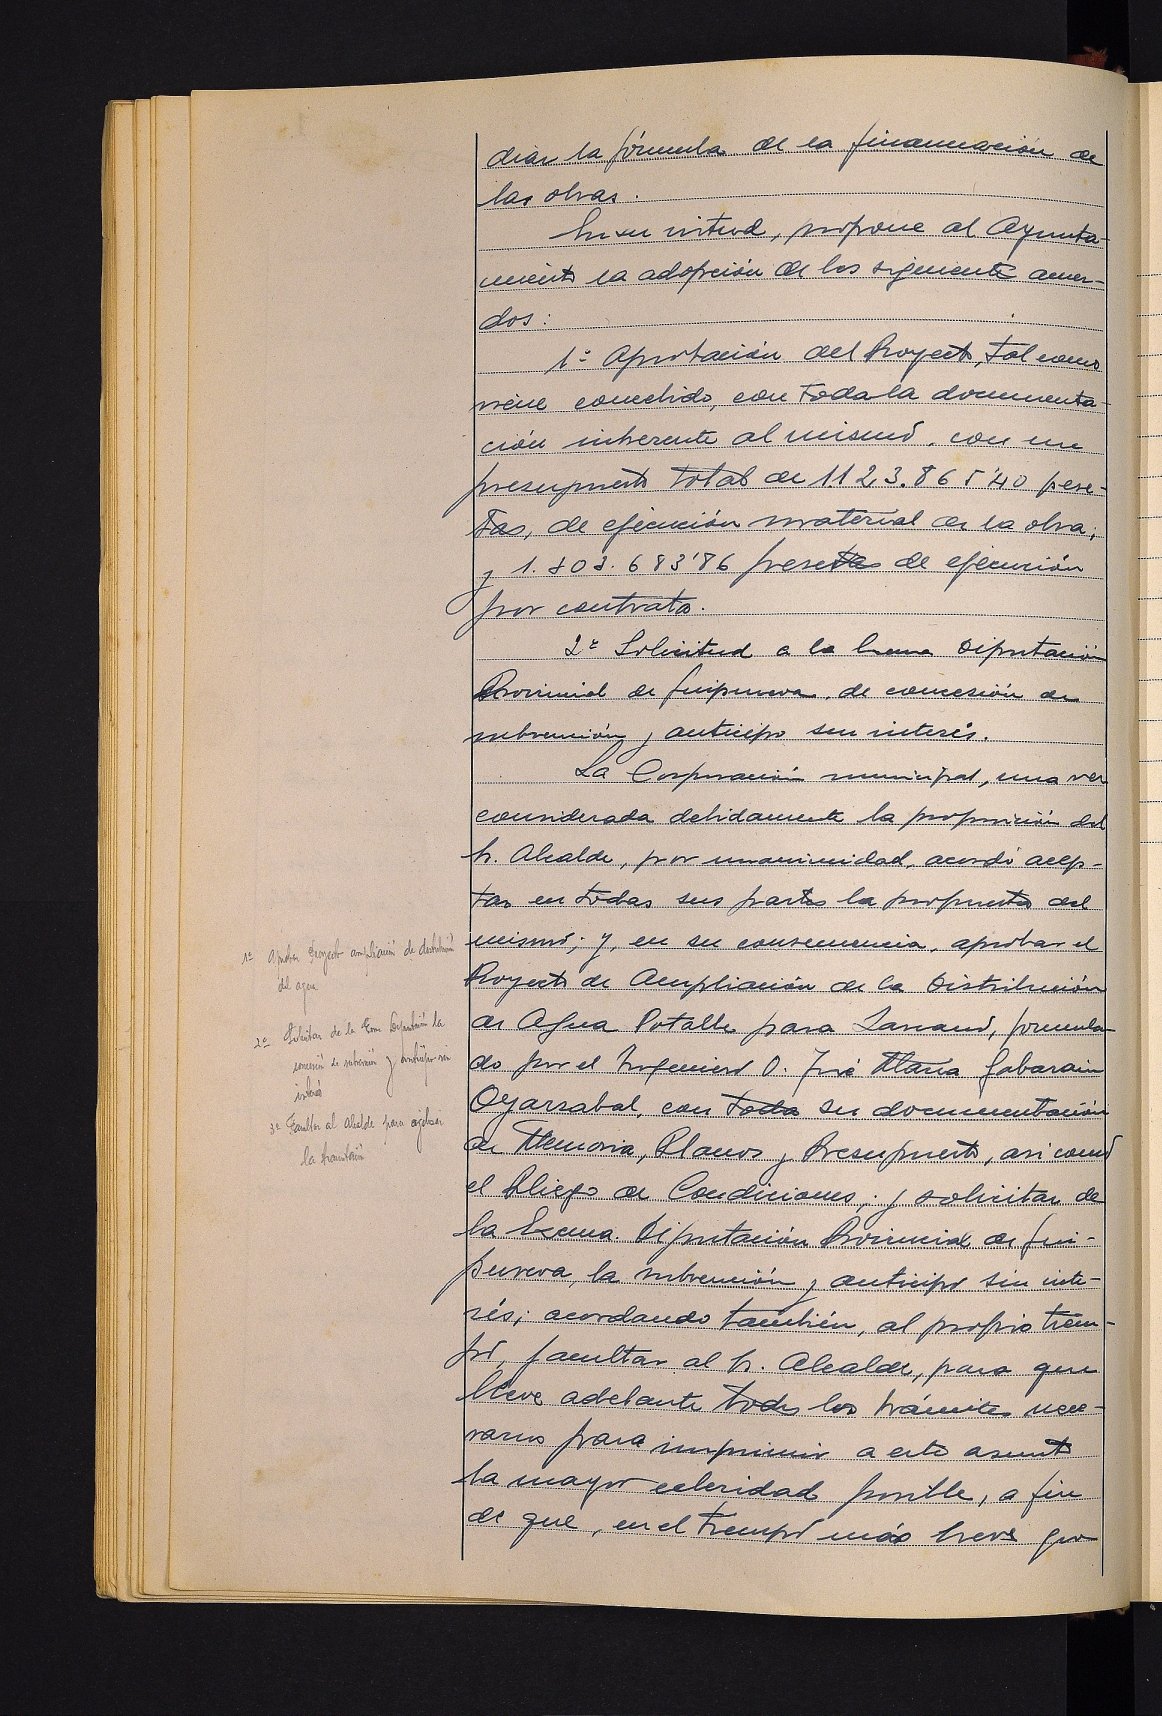 diar la fórmula de la financiación de
las obras.
En su virtud, propone al Ayunta-
miento la adopción de los siguientes acuer-
dos:
1º Aprobación del Proyecto, tal como
viene concebido, con toda la documenta-
ción inherente al mismo, con un
presupuesto total de 1.123.865'40 pese-
tas, de ejecución material de la obra;
y pesetas de ejecución
por contrata.
2º Solicitud a la Excma Diputación
Provincial de Guipuzcoa, de concesión de
subvención y anticipo sin interés.
La Corporación municipal, una vez
considerada debidamente la proposición del
Sr. Alcalde, por unanimidad, acordó acep-
tar en todas sus partes la propuesta del
mismo; y, en su consecuencia, aprobar el
Proyecto de Ampliación de la Distribución
de Agua Potable para Lasao, formula-
do por el Ingeniero D. José María Gabarain
Oyarzabal, con toda su documentación
de Memoria, Planos y Presupuesto, asi como
el Pliego de Condiciones; y solicitar de
la Excma. Diputación Provincial de Gui-
puzcoa, la subvención y anticipo sin inte-
rés; acordando también, al propio tiem-
po, facultar al Sr. Alcalde, para que
lleve adelante todos los trámites nece-
sarios para imprimir a este asunto
la mayor celeridad posible, a fin
de que, en el tiempo más breve po-
1º Aprobar Proyecto ampliación de distribución
del agua
2º Solicitar de la Excma Diputación la
concesión de subvención y anticipo sin
interés
3º Facultar al Alcalde para agilizar
la tramitación